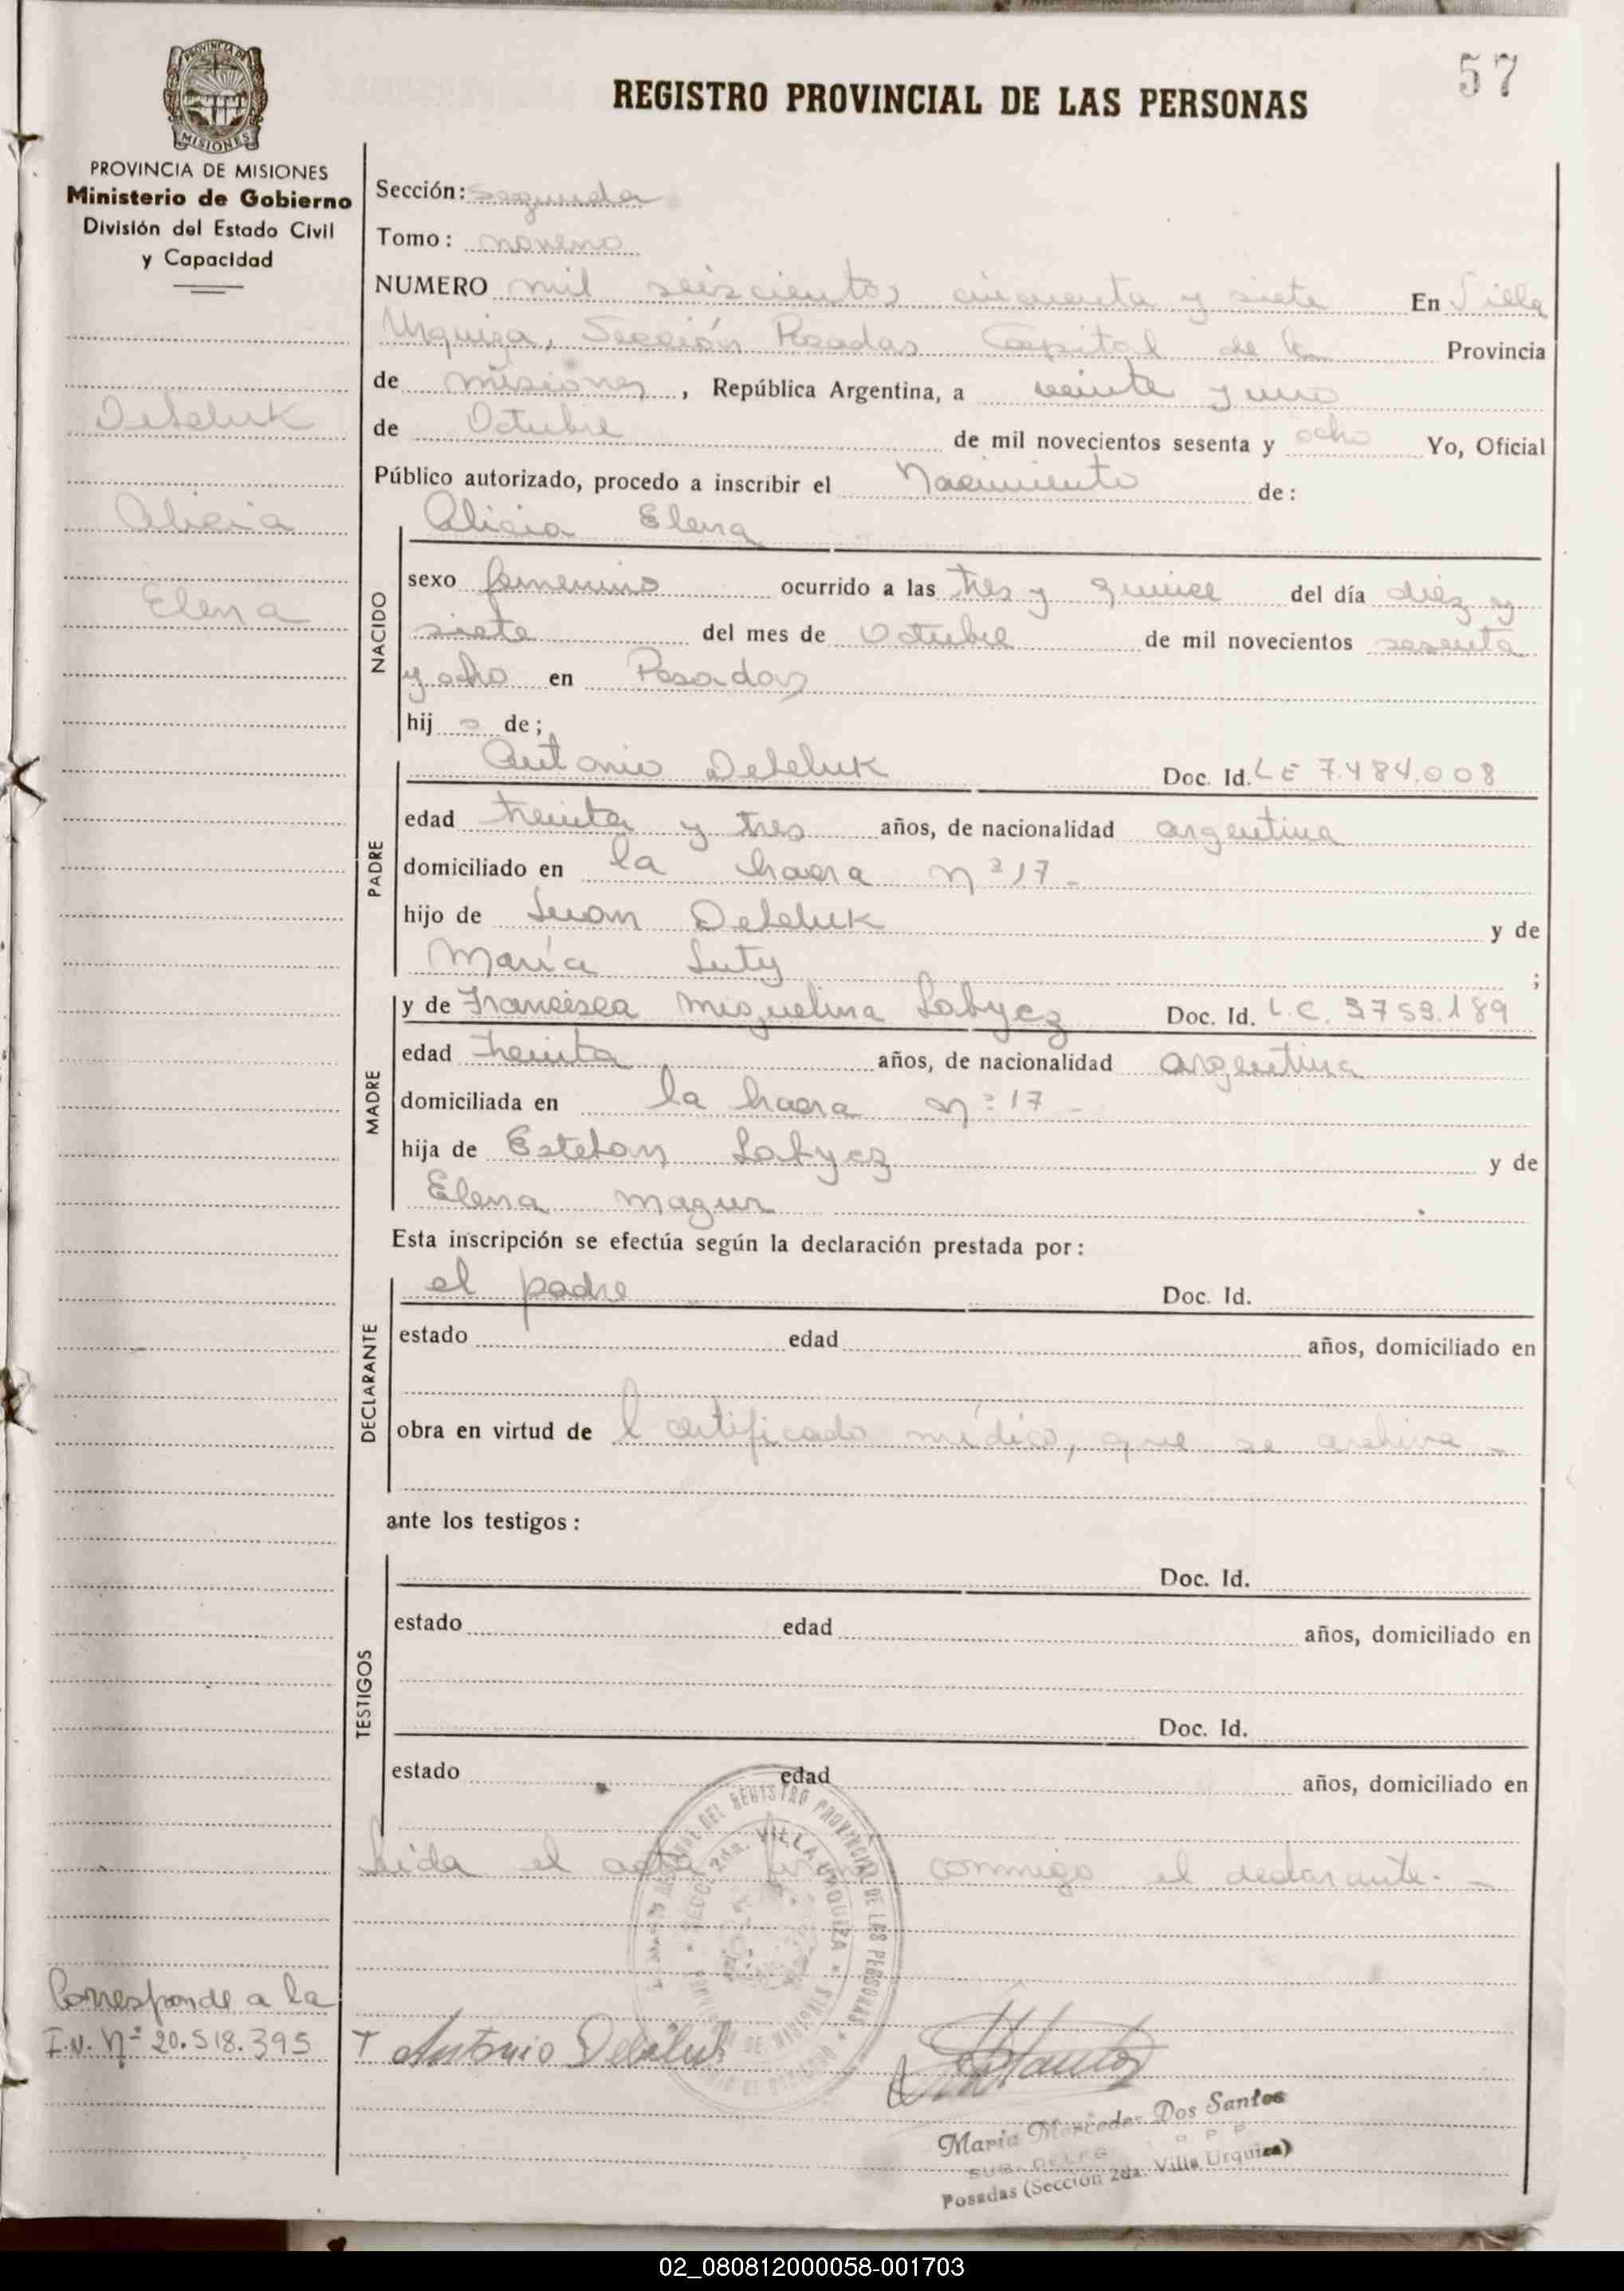 57
PROVINCIA DE MISIONES
REGISTRO PROVINCIAL DE LAS PERSONAS
PROVINCIA DE MISIONES
Ministerio de Gobierno
División del Estado Civil
y Capacidad
Deleluk
Alicia
Elena
Sección: Segunda
Tomo: noveno
NUMERO mil seiscientos cincuenta y siete En Villa
Urquiza, Sección Posadas Capital de la Provincia
de misiones, República Argentina, a veinte y uno
de Octubre de mil novecientos sesenta y ocho Yo, Oficial
Público autorizado, procedo a inscribir el Nacimiento de:
NACIDO
Alicia Elena
sexo femenino ocurrido a las tres y quince del día diez y
siete del mes de Octubre de mil novecientos sesenta
y ocho en Posadas
hij a de;
PADRE
Antonio Deleluk Doc. Id. LE 7.484.008
edad treinta y tres años, de nacionalidad argentina
domiciliado en la chacra nº 17-
hijo de Juan Deleluk y de
María Luty ;
MADRE
y de Francisca Miguelina Labycz Doc. Id. L.C. 3759.189
edad treinta años, de nacionalidad argentina
domiciliada en la chacra nº 17-
hija de Esteban Labycz y de
Elena mazur
Esta inscripción se efectúa según la declaración prestada por:
DECLARANTE
el padre Doc. Id.
estado edad años, domiciliado en
obra en virtud de l certificado médico, que se archiva -
ante los testigos:
TESTIGOS
Doc. Id.
estado edad años, domiciliado en
Doc. Id.
estado edad años, domiciliado en
Leida el acta firma conmigo el declarante. -
DEL REGISTRO PROVINCIAL DE LAS PERSONAS
SECC. 2da. VILLA URQUIZA
PROVINCIA DE MISIONES
Corresponde a la
I.N. Nº 20.518.395
Antonio Deleluk
María Mercedes Dos Santos
SUB-DELEG R P P
Posadas (Sección 2da. Villa Urquiza)
02_080812000058-001703